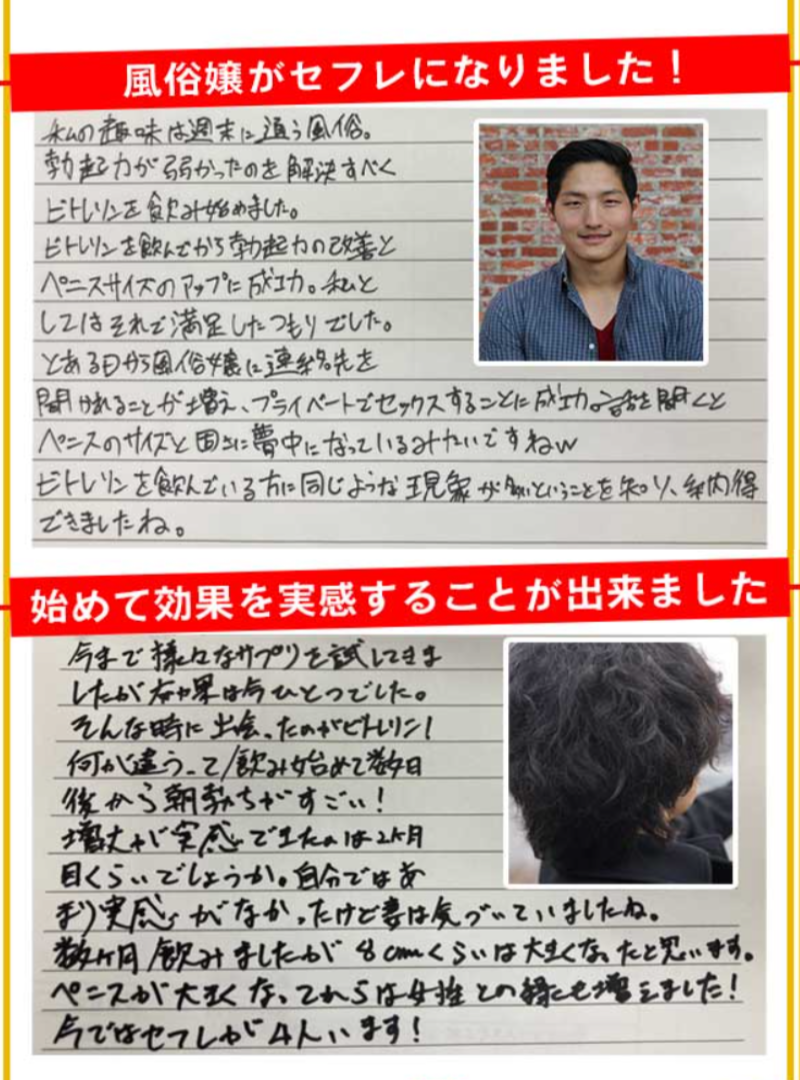 風俗嬢がセフレになりました！
私の趣味は週末に通う風俗。
勃起力が弱かったのを解決すべく
ビトレリンを飲み始めました。
ビトレリンを飲んでから勃起力の改善と
ペニスサイズのアップに成功。私と
してはそれで満足したつもりでした。
とある日から風俗嬢に連絡先を
聞かれることが増え、プライベートでセックスすることに成功。話を聞くと
ペニスのサイズと固さに夢中になっているみたいですねw
ビトレリンを飲んでいる方に同じような現象が多いということを知り、納得
できましたね。
始めて効果を実感することが出来ました
今まで様々なサプリを試してきま
したが効果は今ひとつでした。
そんな時に出会ったのがビトレリン！
何が違うって飲み始めて数日
後から朝勃ちがすごい！
増大が実感できたのは2ヶ月
目くらいでしょうか。自分ではあ
まり実感がなかったけど妻は気づいていましたね。
数ヶ月飲みましたが 8cmくらいは大きくなったと思います。
ペニスが大きくなってからは女性との縁にも増えました！
今ではセフレが4人います！